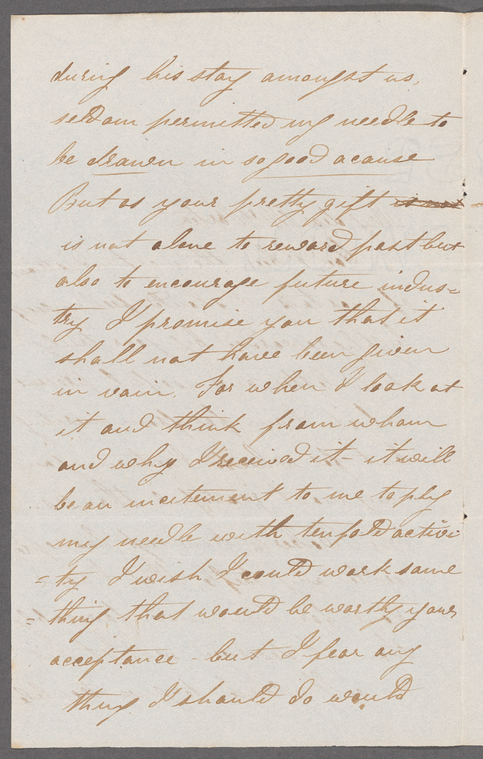 during his stay amongst us,
seldom permitted my needle to
be drawn in so good a cause
But as your pretty gift is not
is not alone to reward past but
also to encourage future indus=
try I promise you that it
shall not have been given
in vain. For when I look at
it and think from whom
and why I received it it will
be an incitement to me to ply
my needle with tenfold activi
=ty I wish I could work some
=thing that would be worthy your
acceptance - but I fear any
thing I should do would